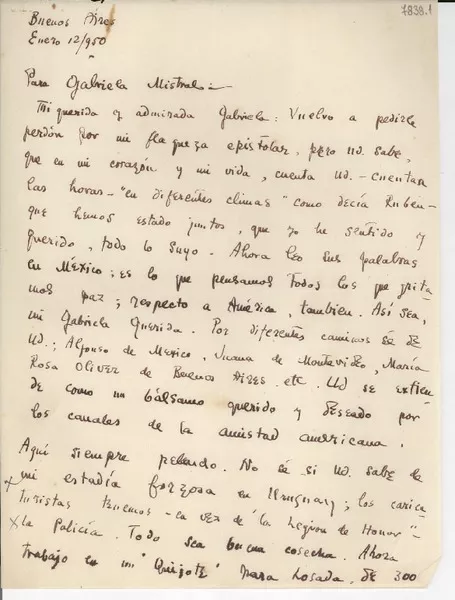 7838.1
Buenos Aires
Enero 12/950
Para Gabriela Mistral:-
Mi querida y admirada Gabriela: Vuelvo a pedirle
perdón por mi flaqueza epistolar, pero Ud. sabe,
que en mi corazón y mi vida, cuenta Ud. - cuentan
las horas - "en diferentes climas" como decía Rubén -
que hemos estado juntos, que yo he sentido y
querido, todo lo suyo. Ahora leo sus palabras
en México; es lo que pensamos todos los que grita-
mos paz; respecto a América, también. Así sea,
mi Gabriela querida. Por diferentes caminos sé de
Ud.; Alfonso de México, Juana de Montevideo, María
Rosa Oliver de Buenos Aires. etc. Ud se extien-
de como un bálsamo querido y deseado por
los canales de la amistad americana.
Aquí siempre peleando. No sé si Ud. sabe de
mi estadía forzosa en Uruguay; los carica-
turistas tenemos - en vez de "la Legion de Honor" -
la Policía. Todo sea buena cosecha. Ahora
trabajo en un "Quijote" para Losada, de 300